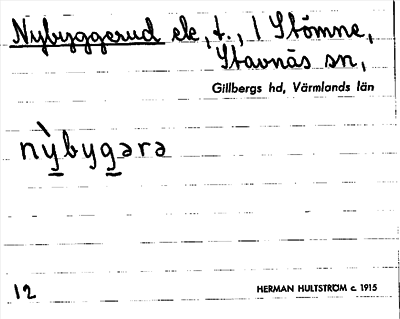 Nybyggerud ek, t., 1 Stömne,
Stavnäs sn,
Gillbergs hd, Värmlands län
nỳbygara
12
HERMAN HULTSTRÖM c. 1915